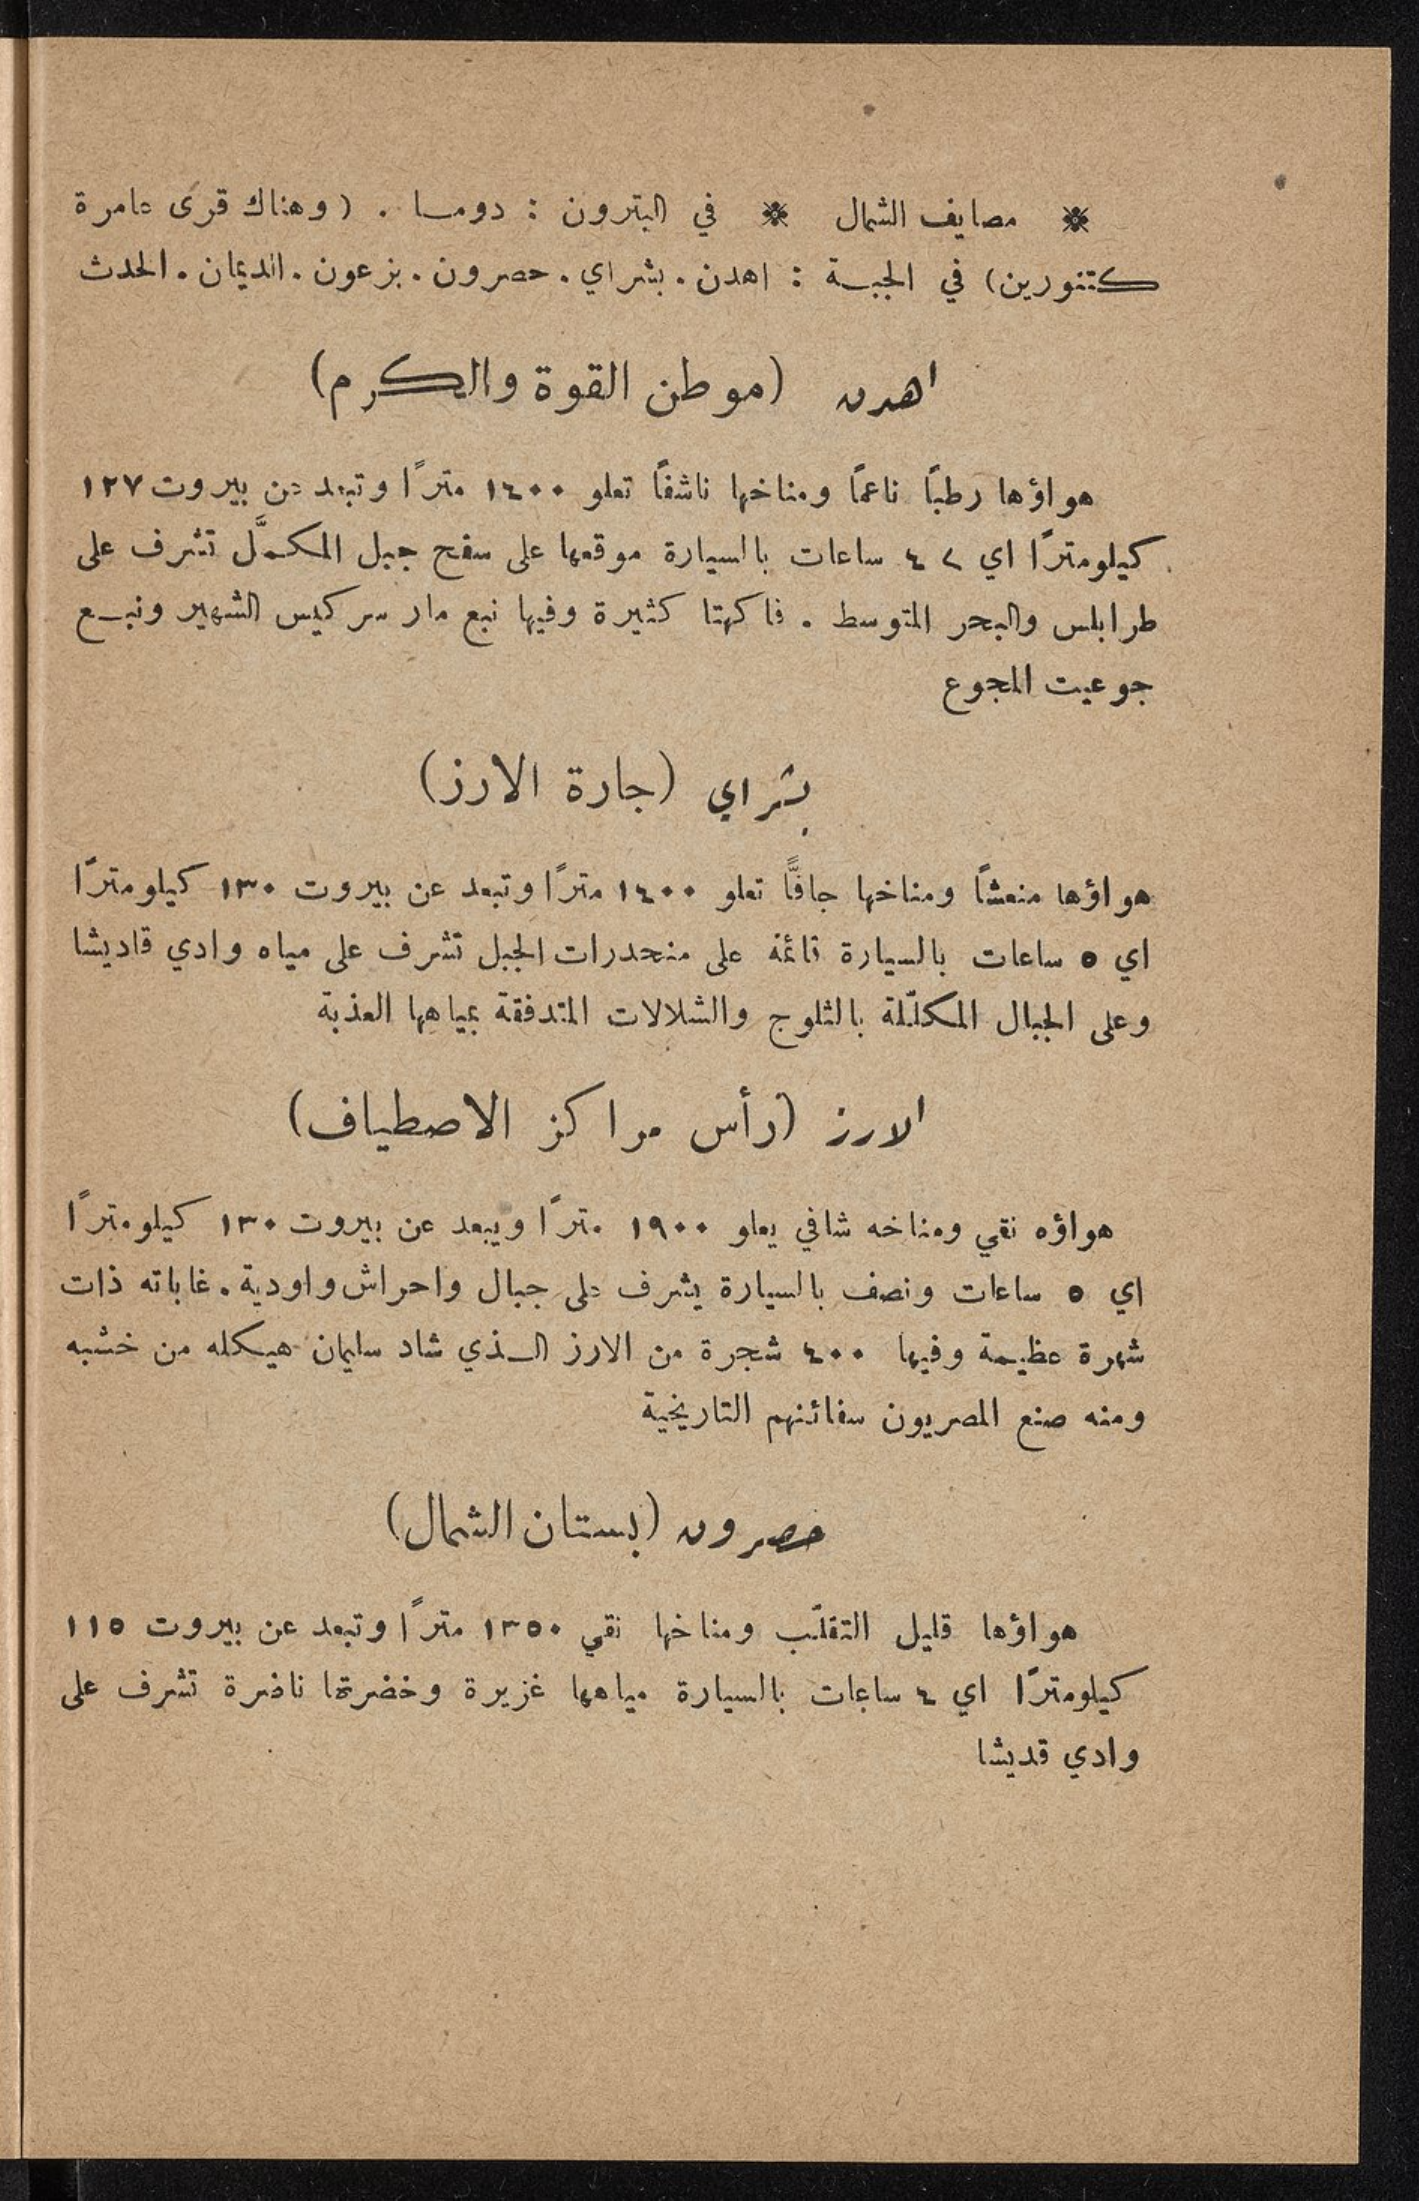 ※ مصايف الشمال ※ في البترون : دومـا . (وهناك قرى عامرة
كتنورين) في الجبـة : اهدن . بشراي . حصرون . بزعون . الديمان . الحدث
اهدن (موطن القوة والكرم)
هواؤها رطباً ناعماً ومناخها ناشفاً تعلو ١٤٠٠ متراً وتبعد عن بيروت ١٢٧
كيلومتراً اي ٤ ساعات بالسيارة موقعها على سفح جبل المكمَّل تشرف على
طرابلس والبحر المتوسط . فاكهتا كثيرة وفيها نبع مار سركيس الشهير ونبـع
جوعيت المجوع
بشراي (جارة الارز)
هواؤها منعشاً ومناخها جافاًّ تعلو ١٤٠٠ متراً وتبعد عن بيروت ١٣٠ كيلومتراً
اي ٥ ساعات بالسيارة قائمة على منحدرات الجبل تشرف على مياه وادي قاديشا
وعلى الجبال المكلّلة بالثلوج والشلالات المتدفقة بمياهها العذبة
الارز (رأس مراكز الاصطياف)
هواؤه نقي ومناخه شافي يعلو ١٩٠٠ متراً ويبعد عن بيروت ١٣٠ كيلومتراً
اي ٥ ساعات ونصف بالسيارة يشرف على جبال واحراش واودية . غاباته ذات
شهرة عظيمة وفيها ٤٠٠ شجرة من الارز الـذي شاد سليمان هيكله من خشبه
ومنه صنع المصريون سفائنهم التاريخية
حصرون (بستان الشمال)
هواؤها قليل التقلّب ومناخها نقي ١٣٥٠ متراً وتبعد عن بيروت ١١٥
كيلومتراً اي ٤ ساعات بالسيارة مياهها غزيرة وخضرتها ناضرة تشرف على
وادي قديشا